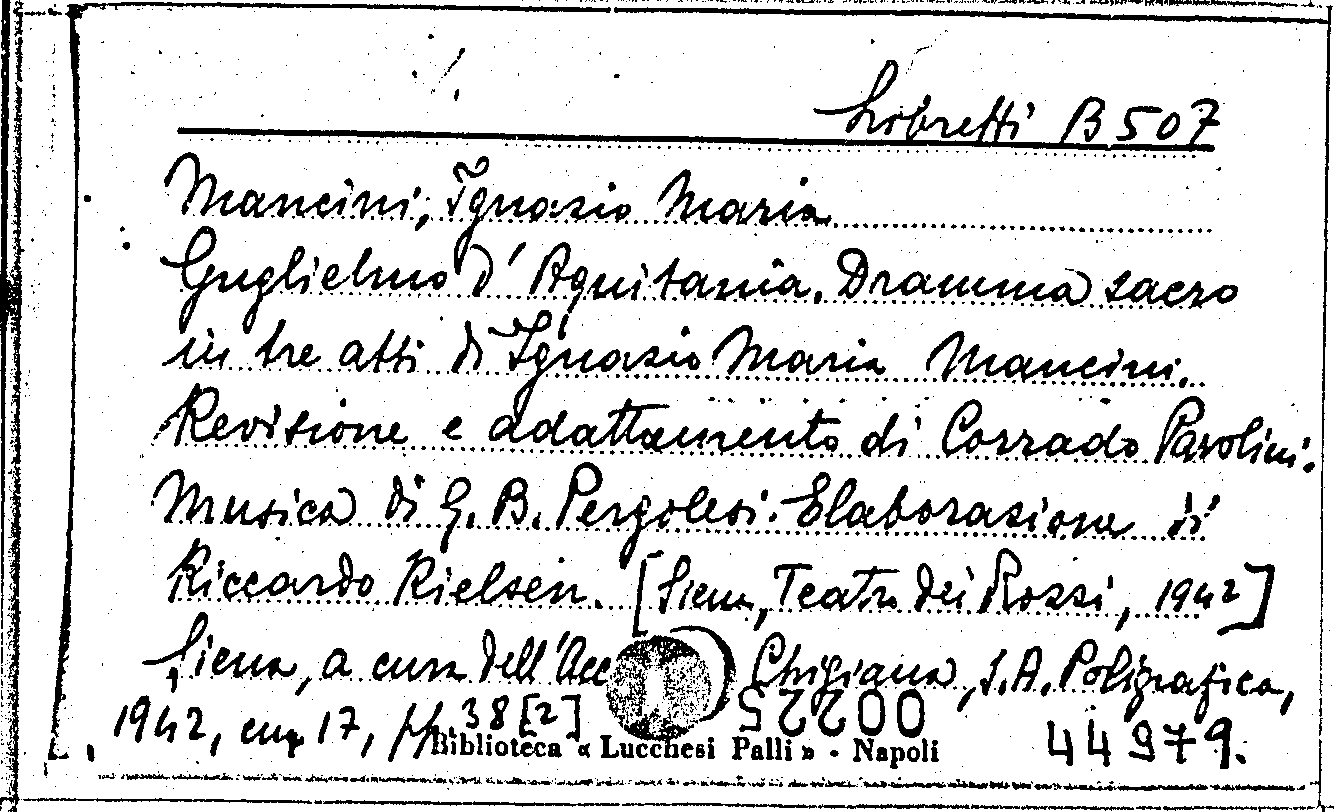 Libretti B 507
Mancini, Ignazio Maria
Guglielmo d'Aquitania. Dramma sacro
in tre atti di Ignazio Maria Mancini.
Revisione e adattamento di Corrado Pavolini.
Musica di G. B. Pergolesi. Elaborazione di
Riccardo Nielsen. [Siena, Teatro dei Rossi, 1942]
Siena, a cura dell'Acc Chigiana, S.A. Poligrafica,
1942, cm 17, pp. 38 [2]
00225
Biblioteca « Lucchesi Palli » - Napoli
44979.